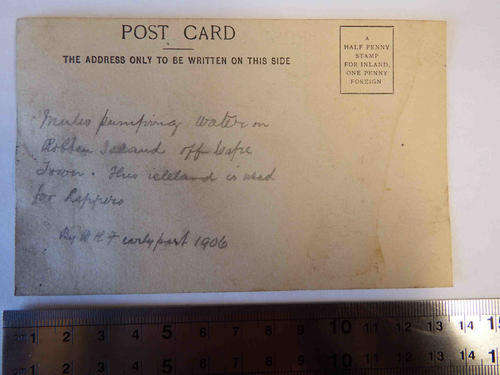 POST CARD
THE ADDRESS ONLY TO BE WRITTEN ON THIS SIDE
A
HALF PENNY
STAMP
FOR INLAND,
ONE PENNY
FOREIGN
Mules pumping water on
Robben Island off Cape
Town. This island is used
for Leppers
By early part 1906
1 2 3 4 5 6 7 8 9 10 11 12 13 14 15